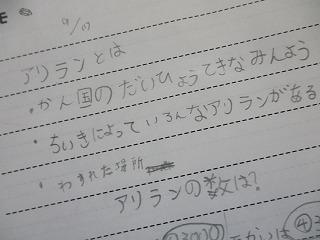 9/17
アリランとは
・かん国のだいひょうてきなみんよう
・ちいきによっていろんなアリランがある
・わすれた場所
アリランの数は?